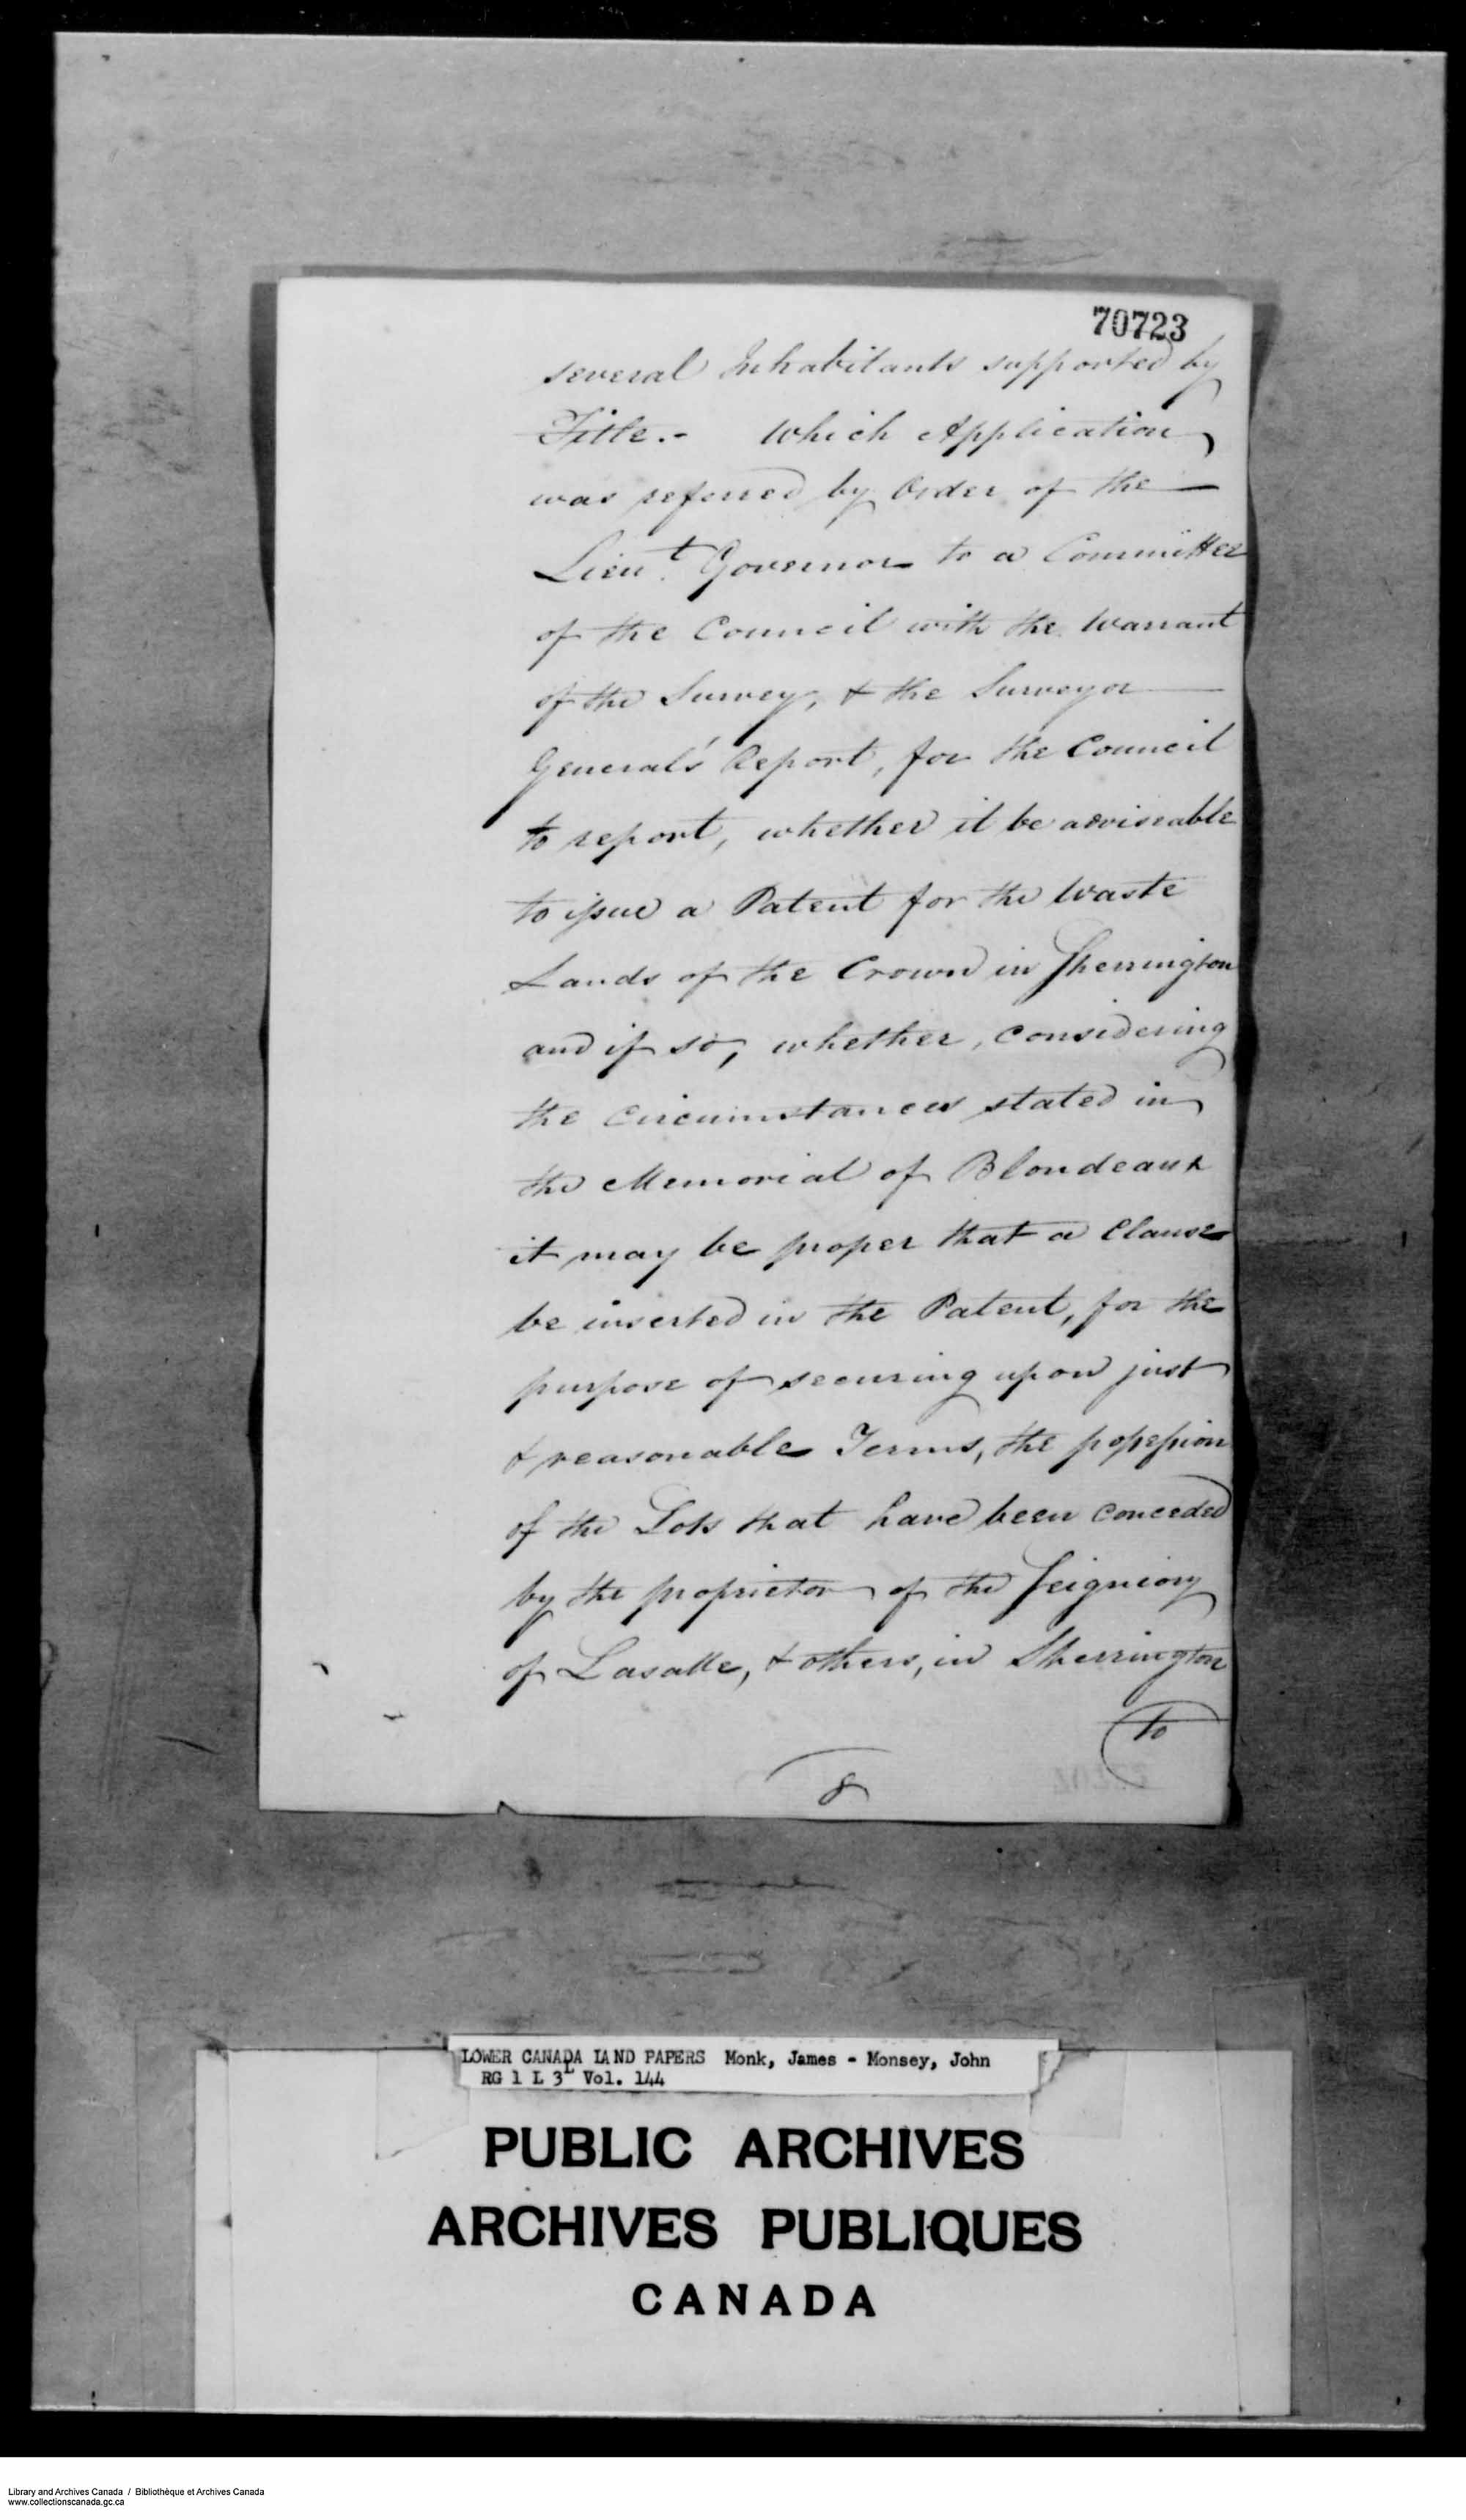 70723
several Inhabitants supported by
Title.- Which Application
was referred by Order of the
Lieu.t Governor to a Committee
of the Council with the Warrant
of the Survey, & the Surveyor
General's Report, for the Council
to report, whether it be adviseable
to issue a Patent for the Waste
Lands of the Crown in Sherrington
and if so, whether, considering
the circumstances stated in
the Memorial of Blondeaux
it may be proper that a Clause
be inserted in the Patent, for the
purpose of securing upon just
& reasonable Terms, the possession
of the Lots that have been conceded
by the proprietor of the Seigniory
of Lasalle, & others, in Sherrington
to
8
LOWER CANADA LAND PAPERS Monk, James - Monsey, John
RG 1 L 3L Vol. 144
PUBLIC ARCHIVES
ARCHIVES PUBLIQUES
CANADA
Library and Archives Canada / Bibliothèque et Archives Canada
www.collectionscanada.gc.ca